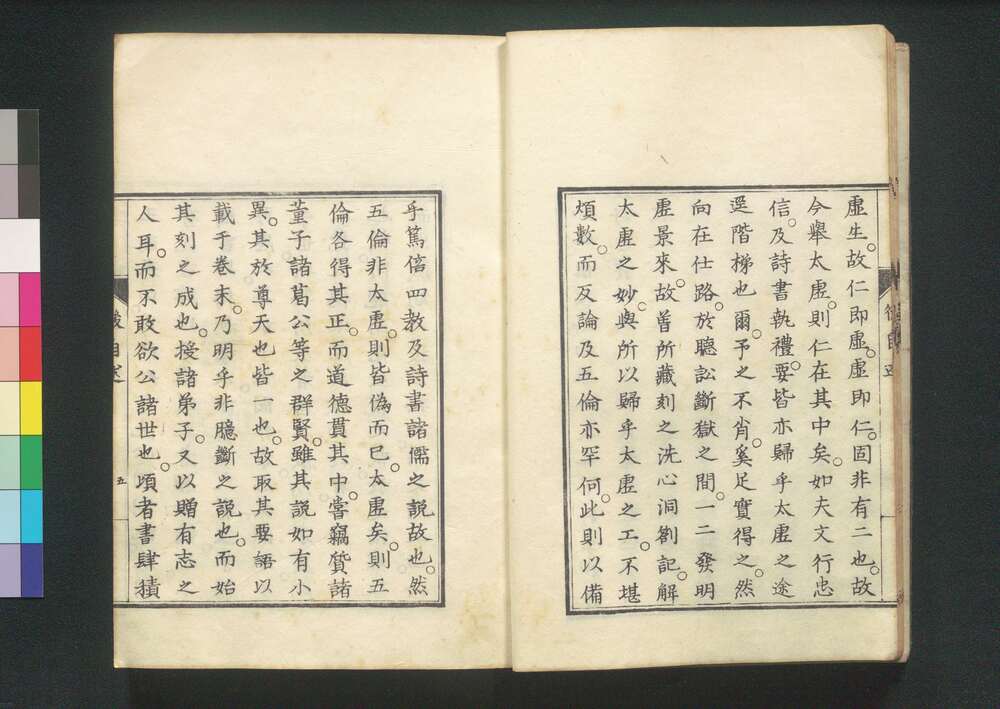 虛生。故仁即虛。虛即仁。固非有二也。故
今舉太虛。則仁在其中矣。如夫文行忠
信。及詩書執禮。要皆亦歸乎太虛之途
逕階梯也爾。予之不肖。奚足實得之。然
向在仕路。於聽訟斷獄之間。一二發明
虛景來。故曽所藏刻之洗心洞劄記。解
太虛之妙。與所以歸乎太虛之工。不堪
煩數。而反論及五倫亦罕。何。此則以備
乎篤信四教及詩書諸儒之說故也。然
五倫非太虛。則皆偽而已。太虛矣。則五
倫各得其正。而道德貫其中。嘗竊贊諸
董子諸葛公等之群賢。雖其說如有小
異。其於尊天也皆一也。故取其要語以
載于卷末。乃明乎非臆斷之說也。而始
其刻之成也。授諸弟子。又以贈有志之
人耳。而不敢欲公諸世也。頃者書肆積
自述
五